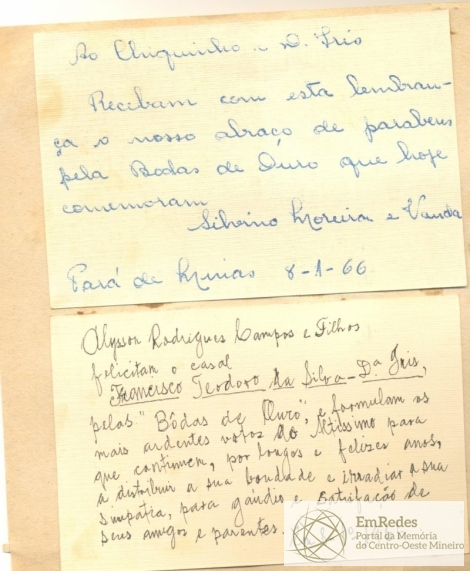 Ao Chiquinho e D. Iris
Recebam com esta lembran-
ça o nosso abraço de parabens
pela Bodas de Ouro que hoje
comemoram
Silvino Moreira e Vanda
Pará de Minas 8-1-66
Alysson Rodrigues Campos e Filhos
felicitam o casal
Francisco Teodoro da Silva - Da Iris,
pelas "Bôdas de Ouro", e formulam os
mais ardentes votos ao Altíssimo para
que continuem, por longos e felizes anos,
a distribuir a sua bondade e irradiar a sua
simpatia, para gáudio e satisfação de
seus amigos e parentes.
EmRedes
Portal da Memória
do Centro-Oeste Mineiro